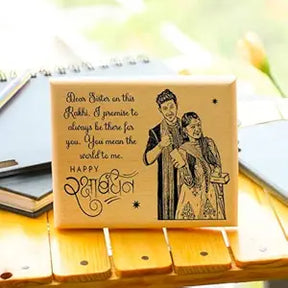 Dear Sister on this
Rakhi, I promise to
always be there for
you. You mean the
world to me.
HAPPY
रक्षाबंधन